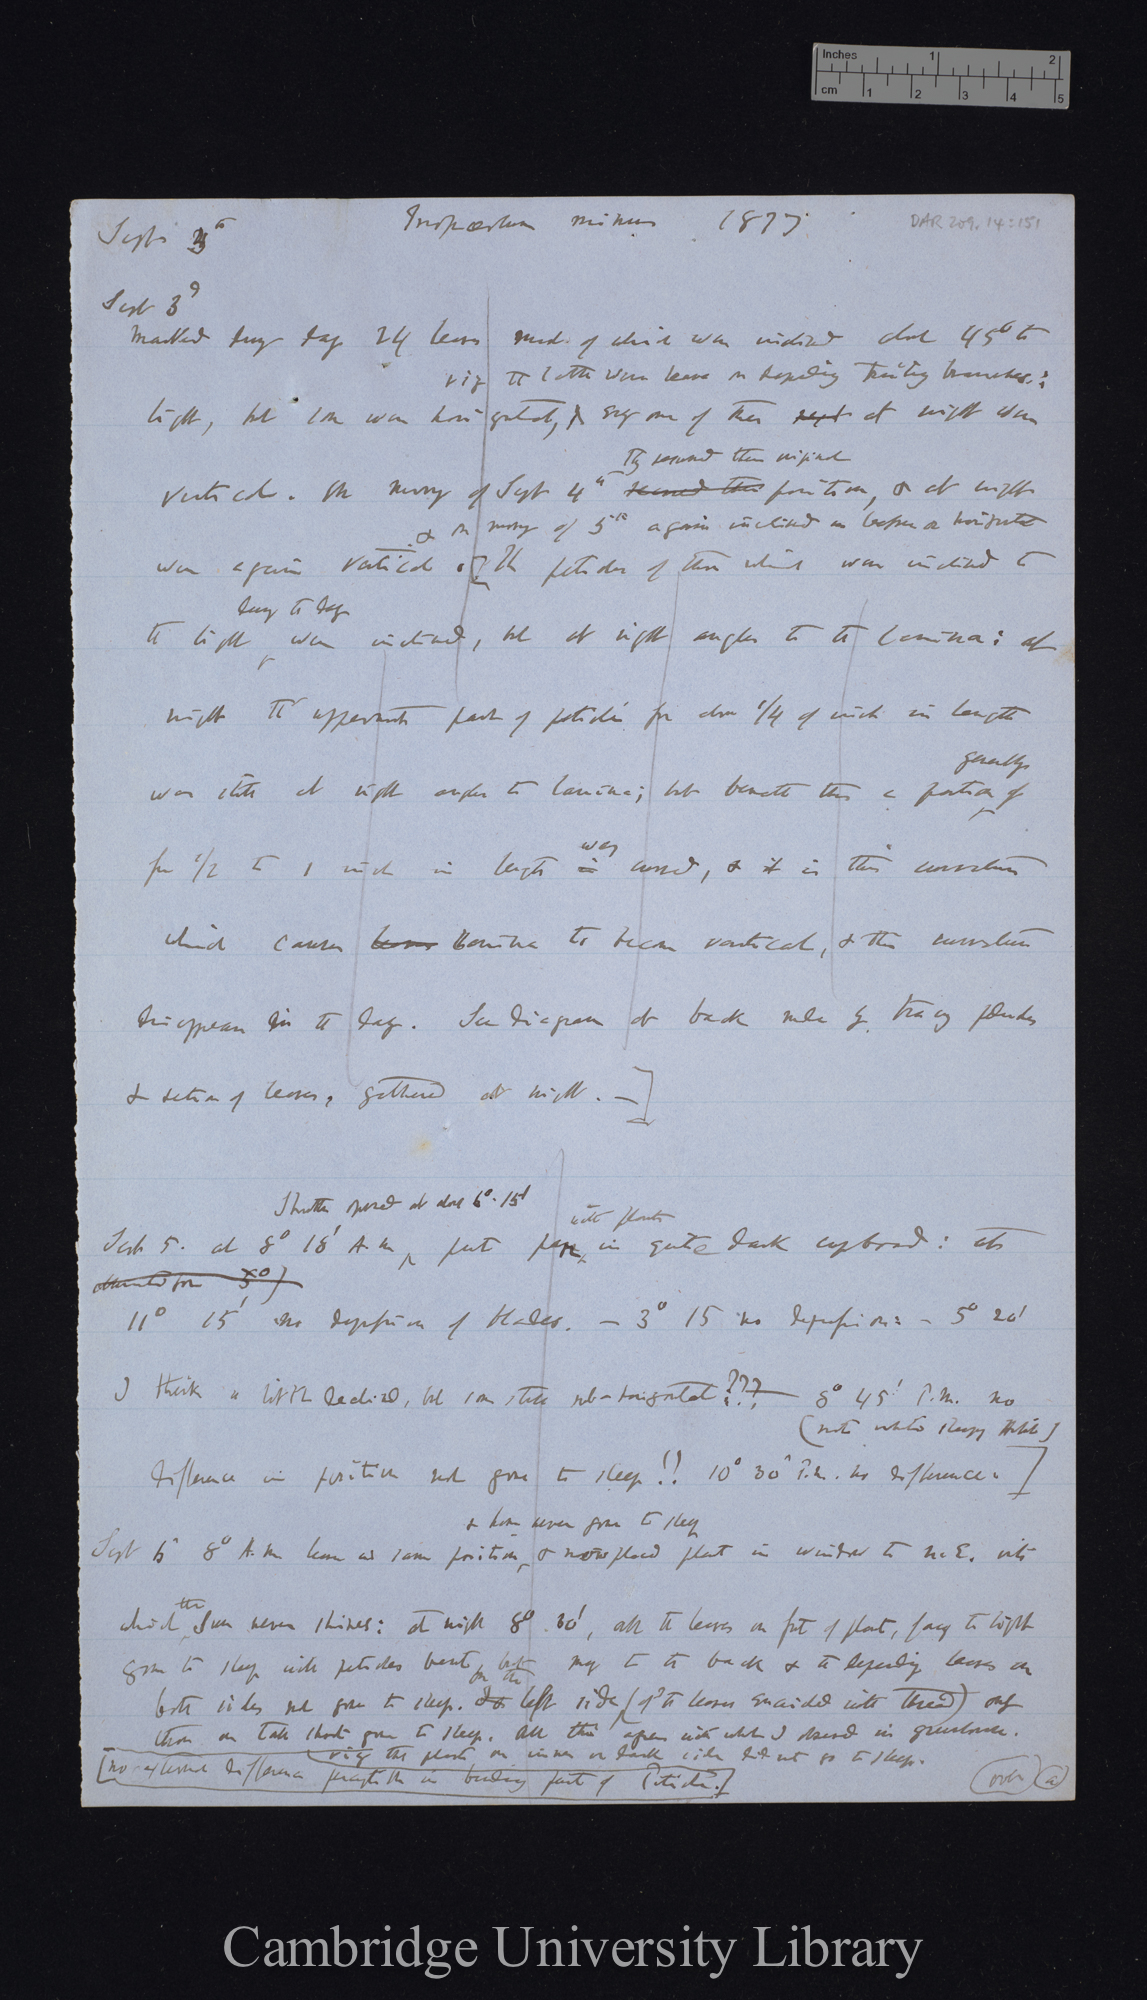 Inches 1 2
cm 1 2 3 4 5
DAR 209.14:151
Tropæolum minus 1877
Sept 3d
Marked during day 24 leaves most of which were inclined about 45° to
viz the latter were leaves on depending trailing branches:
light, but some were horizontal, & every one of them at night were
They resumed their original
vertical. On morning of Sept 4th resumed their position, & at night
& on morning of 5th again inclined as before or horizontal
were again vertical. [The petioles of those which were inclined to
during the day
the light were inclined, but at right angles to the lamina: at
night the uppermost part of petiole for about 1/4 of inch in length
was still at right angles to lamina; but beneath this a portion
generally
for 1/2 to 1 inch in length is was curved, & it is this curvature
which causes leaves lamina to become vertical, & this curvature
disappears in the day. See diagram at back made by tracing petioles
& section of leaves, gathered at night. —]
Shutters opened at about 6°. 15'
with plants
Sept 5. at 8° 15' A.m, put in quite dark cupboard: at
11° 15' no depression of blades. — 3° 15 no depression: – 5° 20'
I think a little declined, but some still sub-horizontal??? — 8° 45' P.m. no
(note white sleepy
difference in position not gone to sleep!! 10° 30' P.m. no difference.]
& have never gone to sleep
Sept 6 8° A.m leaves as same position, & now placed plant in window to N.E. into
which the Sun never shines: at night 8° 30', all the leaves on front of plant, facing the light
gone to sleep with petioles bent, but many to the back & the depending leaves on
both sides not gone to sleep. on the left side (of the leaves encircled with thread) only
those on tall shoots gone to sleep. All this agrees with what I observed in greenhouse.
viz the plants on inner or dark side did not go to sleep.
[no external difference perceptible in bending part of Petiole.]
(over) (a)
Cambridge University Library